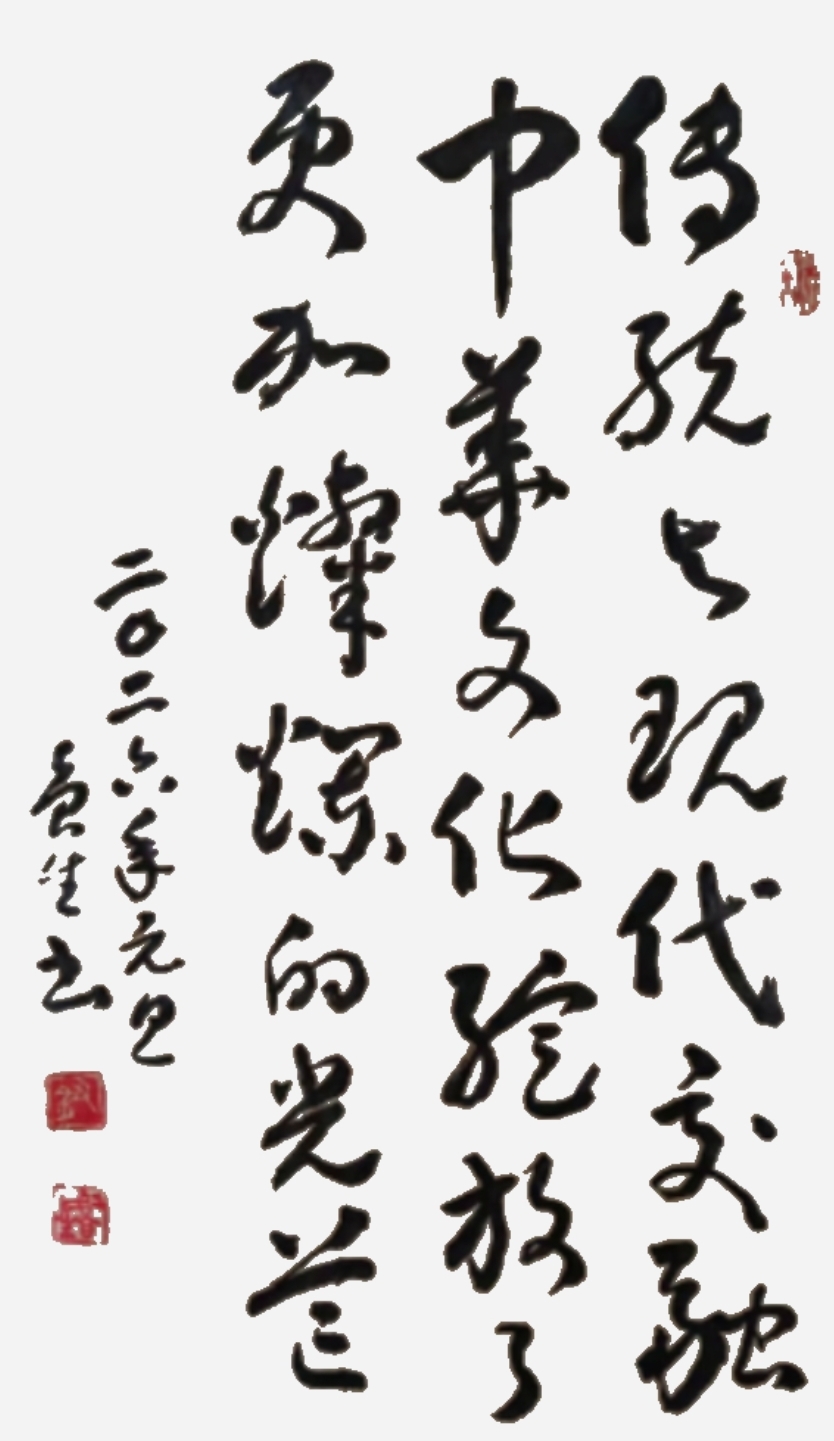 传统与现代交融
中华文化绽放了
更加灿烂的光芒
二〇二六年元旦
生书